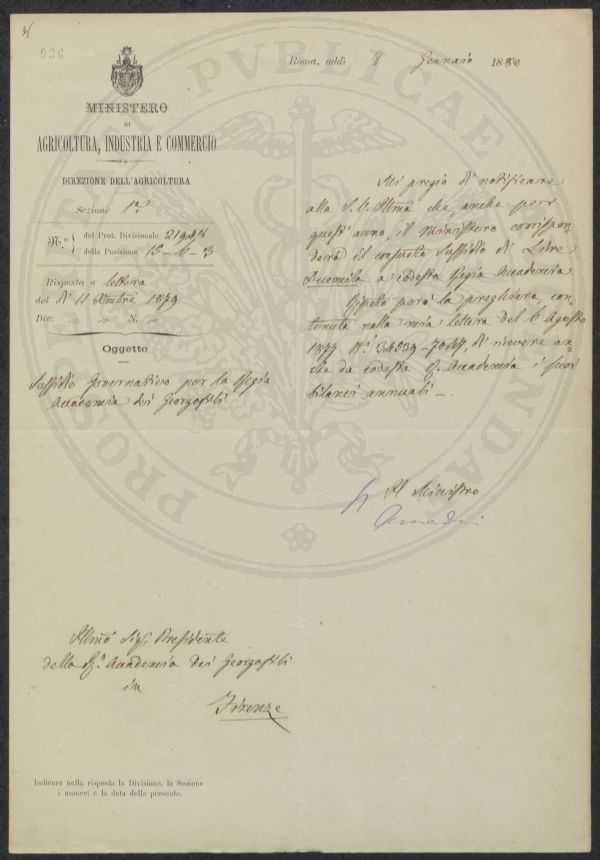 996
Roma, addì 8 Gennaio 1880
MINISTERO
DI
AGRICOLTURA, INDUSTRIA E COMMERCIO
DIREZIONE DELL'AGRICOLTURA
Sezione 1ª
N.º del Prot. Divisionale
della Posizione 15-6-3
Risposta a lettera
del dì 11 Xmbre 1879
Div. N.
Oggetto
Sussidio Governativo per la Regia
Accademia dei Georgofili
Mi pregio di notificare
alla S. V. Illma che, anche per
quest'anno, il Ministero corrispon
derà il consueto sussidio di Lire
Duemila a codesta Regia Accademia.
Ripeto però la preghiera, con
tenuta nella mia lettera del 6 Agosto
1877 di ricevere an
che da codesta R. Accademia i suoi
bilanci annuali.
Il Ministro
Illmo Sig. Presidente
della R.ª Accademia dei Georgofili
in
Firenze
Indicare nella risposta la Divisione, la Sezione
i numeri e la data della presente.
PUBLICAE
PROSPERITATI AUGENDAE